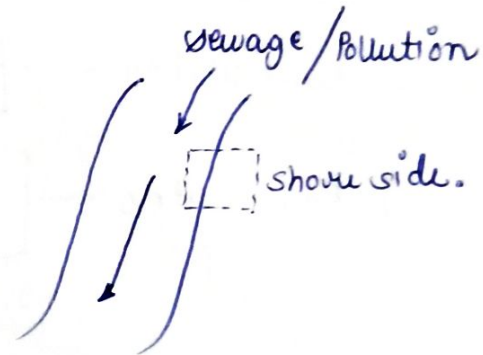 sewage/Pollution
shore side.